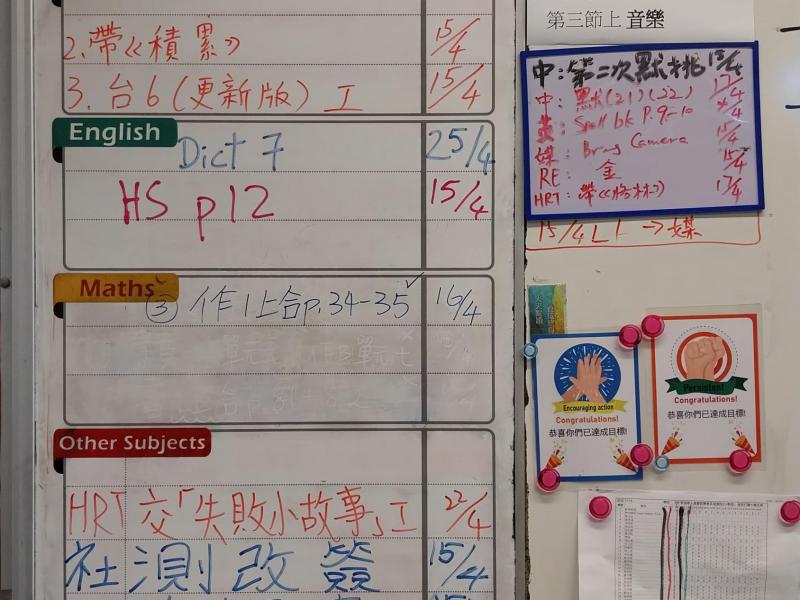 2. 帶《積累》 15/4
3. 台6(更新版) 工 15/4
English
Dict 7 25/4
HS p12 15/4
Maths
③ 作1上合p.34-35 ✓ 16/4
Other Subjects
HRT 交「失敗小故事」工 22/4
社測改簽 15/4
第三節上 音樂
中: 第二次默 15/4
中: 默(21)(22) 17/4
英: Spell bk P.9-10
媒: Bring Camera 15/4
RE: 金 15/4
HRT: 帶《格林》 17/4
15/4 L1 → 媒
Encouraging action
Congratulations!
恭喜你們已達成目標!
Persistent
Congratulations!
恭喜你們已達成目標!